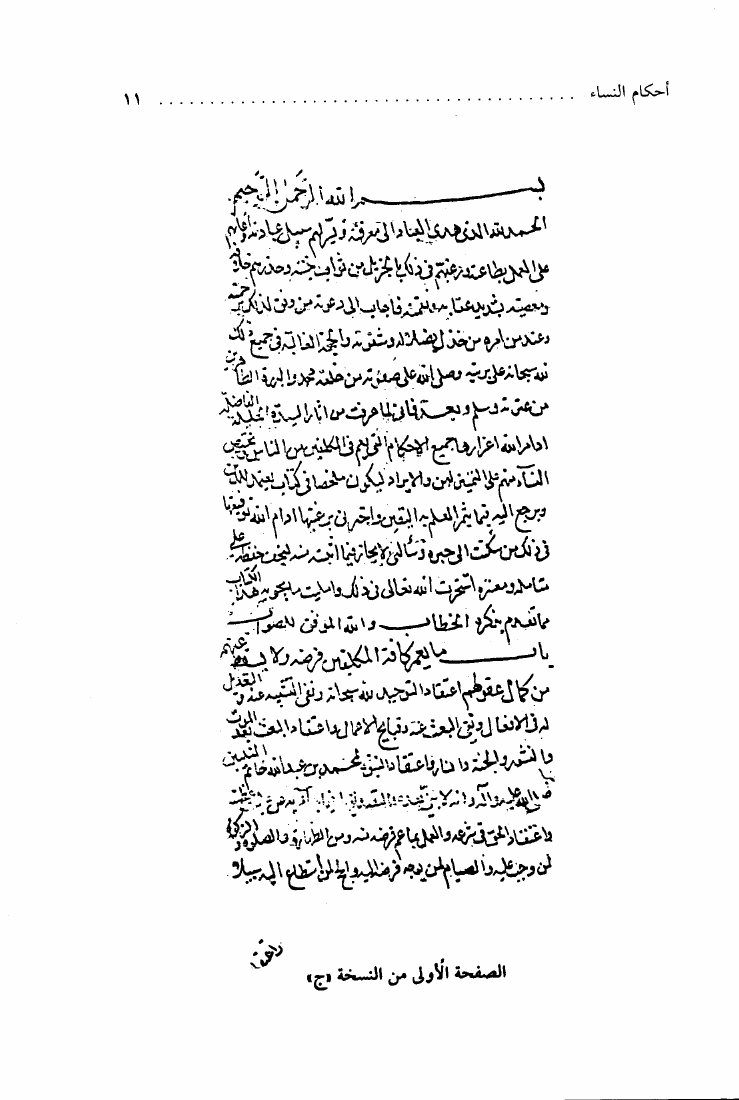 أحكام النساء ........................................ ١١
بسم الله الرحمن الرحيم
الحمد لله الذى هدى العباد الى معرفته ويسر لهم سبيل عبادته
على العمل بطاعته ورغبتهم فى ذلك بالجزيل من ثوابه وحذرهم
ومعصيته بشديد عقابه ونقمته فاجاب الى دعوته من وفق لذلك
وعند من امره من خذل والحجة الغالبة فى جميع ذلك
لله سبحانه على بريته وصلى الله على صفوته من خلقه محمد والبررة
من عترته وسلم وبعد فانى لما عرفت من اثار السيدة الجليلة الفاضلة
ادام الله اعزازها جميع الاحكام التى فى المكلفين من الناس
النساء منهم على التمييز لهن والايراد ليكون ملخصا فى كتاب يعتمد
ويرجع اليه فيما يثمر العلم به اليقين واخبرنى برغبتها ادام الله توفيقها
فى ذلك من سكنت الى خبره وسألنى الايجاز فيما اثبته منه ليخف حفظه على
متامله استخرت الله تعالى فى ذلك وامليت ما يحويه هذا الكتاب
مما تقدم بذكره الخطاب والله الموفق للصواب
باب ما يعم كافة المكلفين فرضه ولا يسقط عنهم
من كمال عقولهم اعتقاد التوحيد لله سبحانه ونفى التشبيه عنه
له فى الافعال ونفى العبث عنه وقبايح الاعمال واعتقاد البعث بعد الموت
والنشور والجنة والنار واعتقاد النبوة لمحمد بن عبد الله خاتم النبيين
صلى الله عليه وآله وانه لا نبى بعده
واعتقاد الحق فى شرعه والعمل بما عم فرضه منه ومن الطهارة والصلوة والزكوة
لمن وجبت عليه والصيام لمن توجه فرضه اليه والحج لمن استطاع اليه سبيلا
الصفحة الأولى من النسخة «ج»